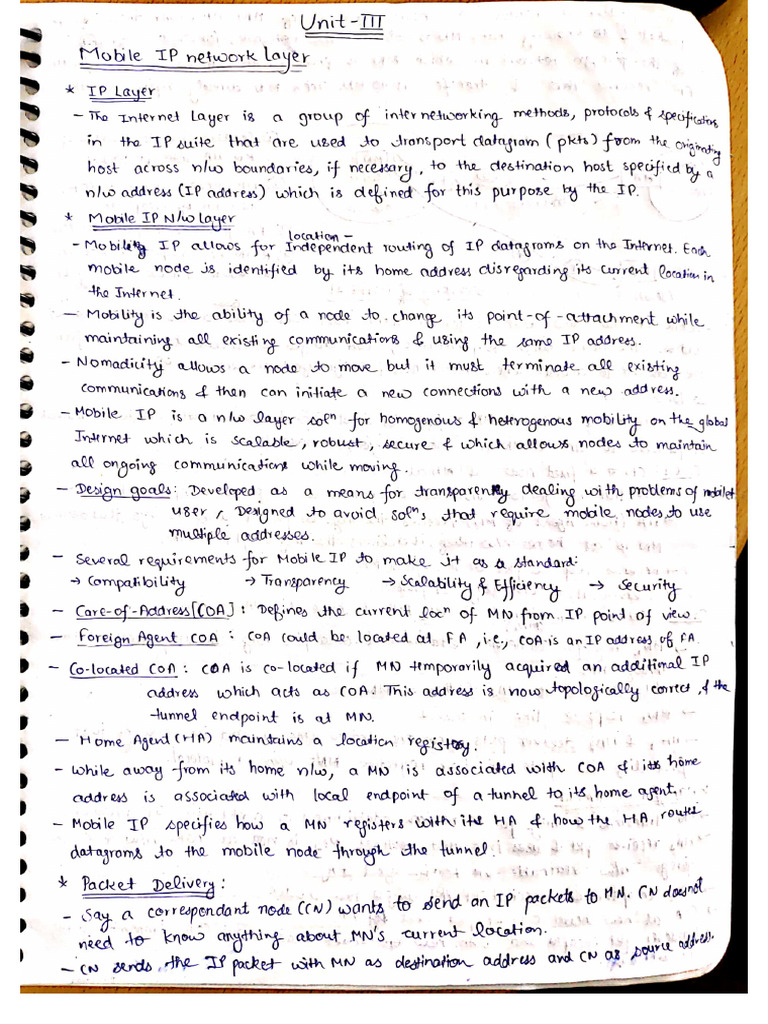 Unit-III
Mobile IP network Layer
* IP Layer
- The Internet Layer is a group of internetworking methods, protocols & specifications
in the IP suite that are used to transport datagram (pkts) from the originating
host across n/w boundaries, if necessary, to the destination host specified by a
n/w address (IP address) which is defined for this purpose by the IP.
* Mobile IP N/w Layer
location-
- Mobility IP allows for Independent routing of IP datagrams on the Internet. Each
mobile node is identified by its home address disregarding its current location in
the Internet.
- Mobility is the ability of a node to change its point-of-attachment while
maintaining all existing communications & using the same IP address.
- Nomadicity allows a node to move but it must terminate all existing
communications & then can initiate a new connections with a new address.
- Mobile IP is a n/w layer solⁿ for homogenous & heterogenous mobility on the global
Internet which is scalable, robust, secure & which allows nodes to maintain
all ongoing communications while moving.
- Design goals: Developed as a means for transparently dealing with problems of mobile
user, Designed to avoid solⁿs that require mobile nodes to use
multiple addresses.
- Several requirements for Mobile IP to make it as a standard:
→ Compatibility → Transparency → Scalability & Efficiency → Security
- Care-of-Address [COA]: Defines the current locⁿ of MN from IP point of view.
- Foreign Agent COA: COA could be located at FA, i.e., COA is an IP address of FA.
- Co-located COA: COA is co-located if MN temporarily acquired an additional IP
address which acts as COA. This address is now topologically correct, & the
tunnel endpoint is at MN.
- Home Agent (HA) maintains a location registry.
- While away from its home n/w, a MN is associated with COA & its home
address is associated with local endpoint of a tunnel to its home agent.
- Mobile IP specifies how a MN registers with its HA & how the HA routes
datagrams to the mobile node through the tunnel.
* Packet Delivery:
- Say a correspondant node (CN) wants to send an IP packets to MN. CN doesnot
need to know anything about MN's current location.
- CN sends the IP packet with MN as destination address and CN as source address.